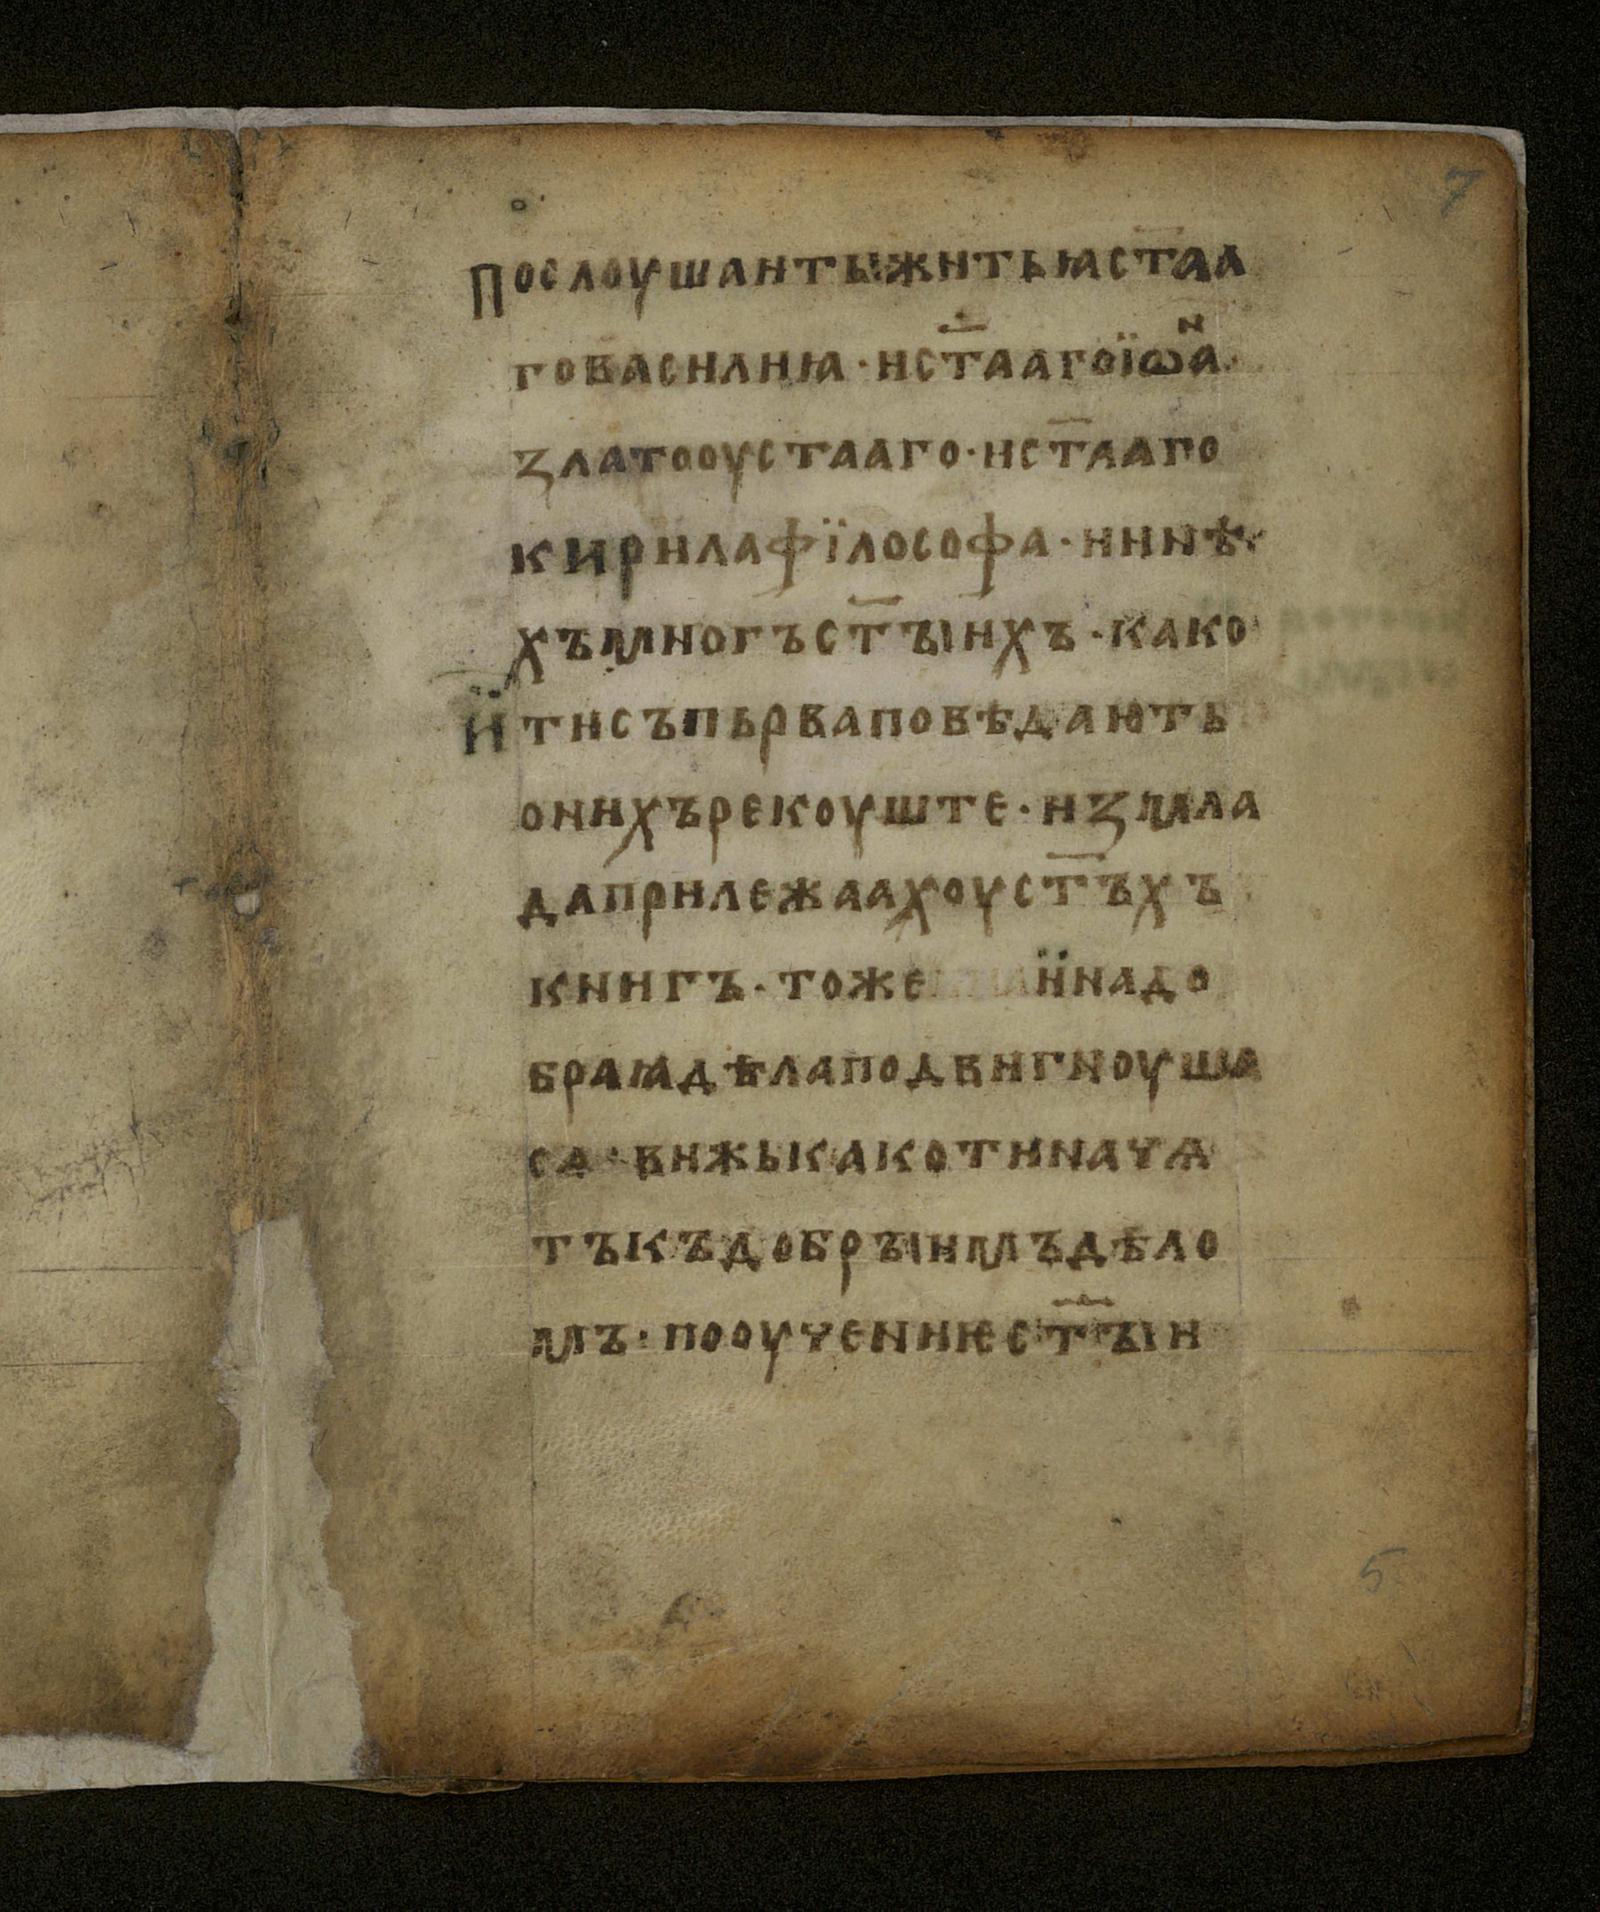 7
послоушаи ты жити ꙗ ст҃аа
го василиꙗ · и ст҃ааго їѡⷩ҇а ·
златооустааго · и ст҃ааго
кирила фїлософа · и инѣ
хъ многъ ст҃ыихъ · како
ти съпьрва повѣдають
о нихъ рекоуште · измла
да прилежаахоу ст҃ъхъ
книгъ · тоже ӥ на до
браꙗ дѣла подвигноуша
сѧ · вижь како ти начѧ
тъкъ добрыимъ дѣло
мъ · пооучениѥ ст҃ыи
5